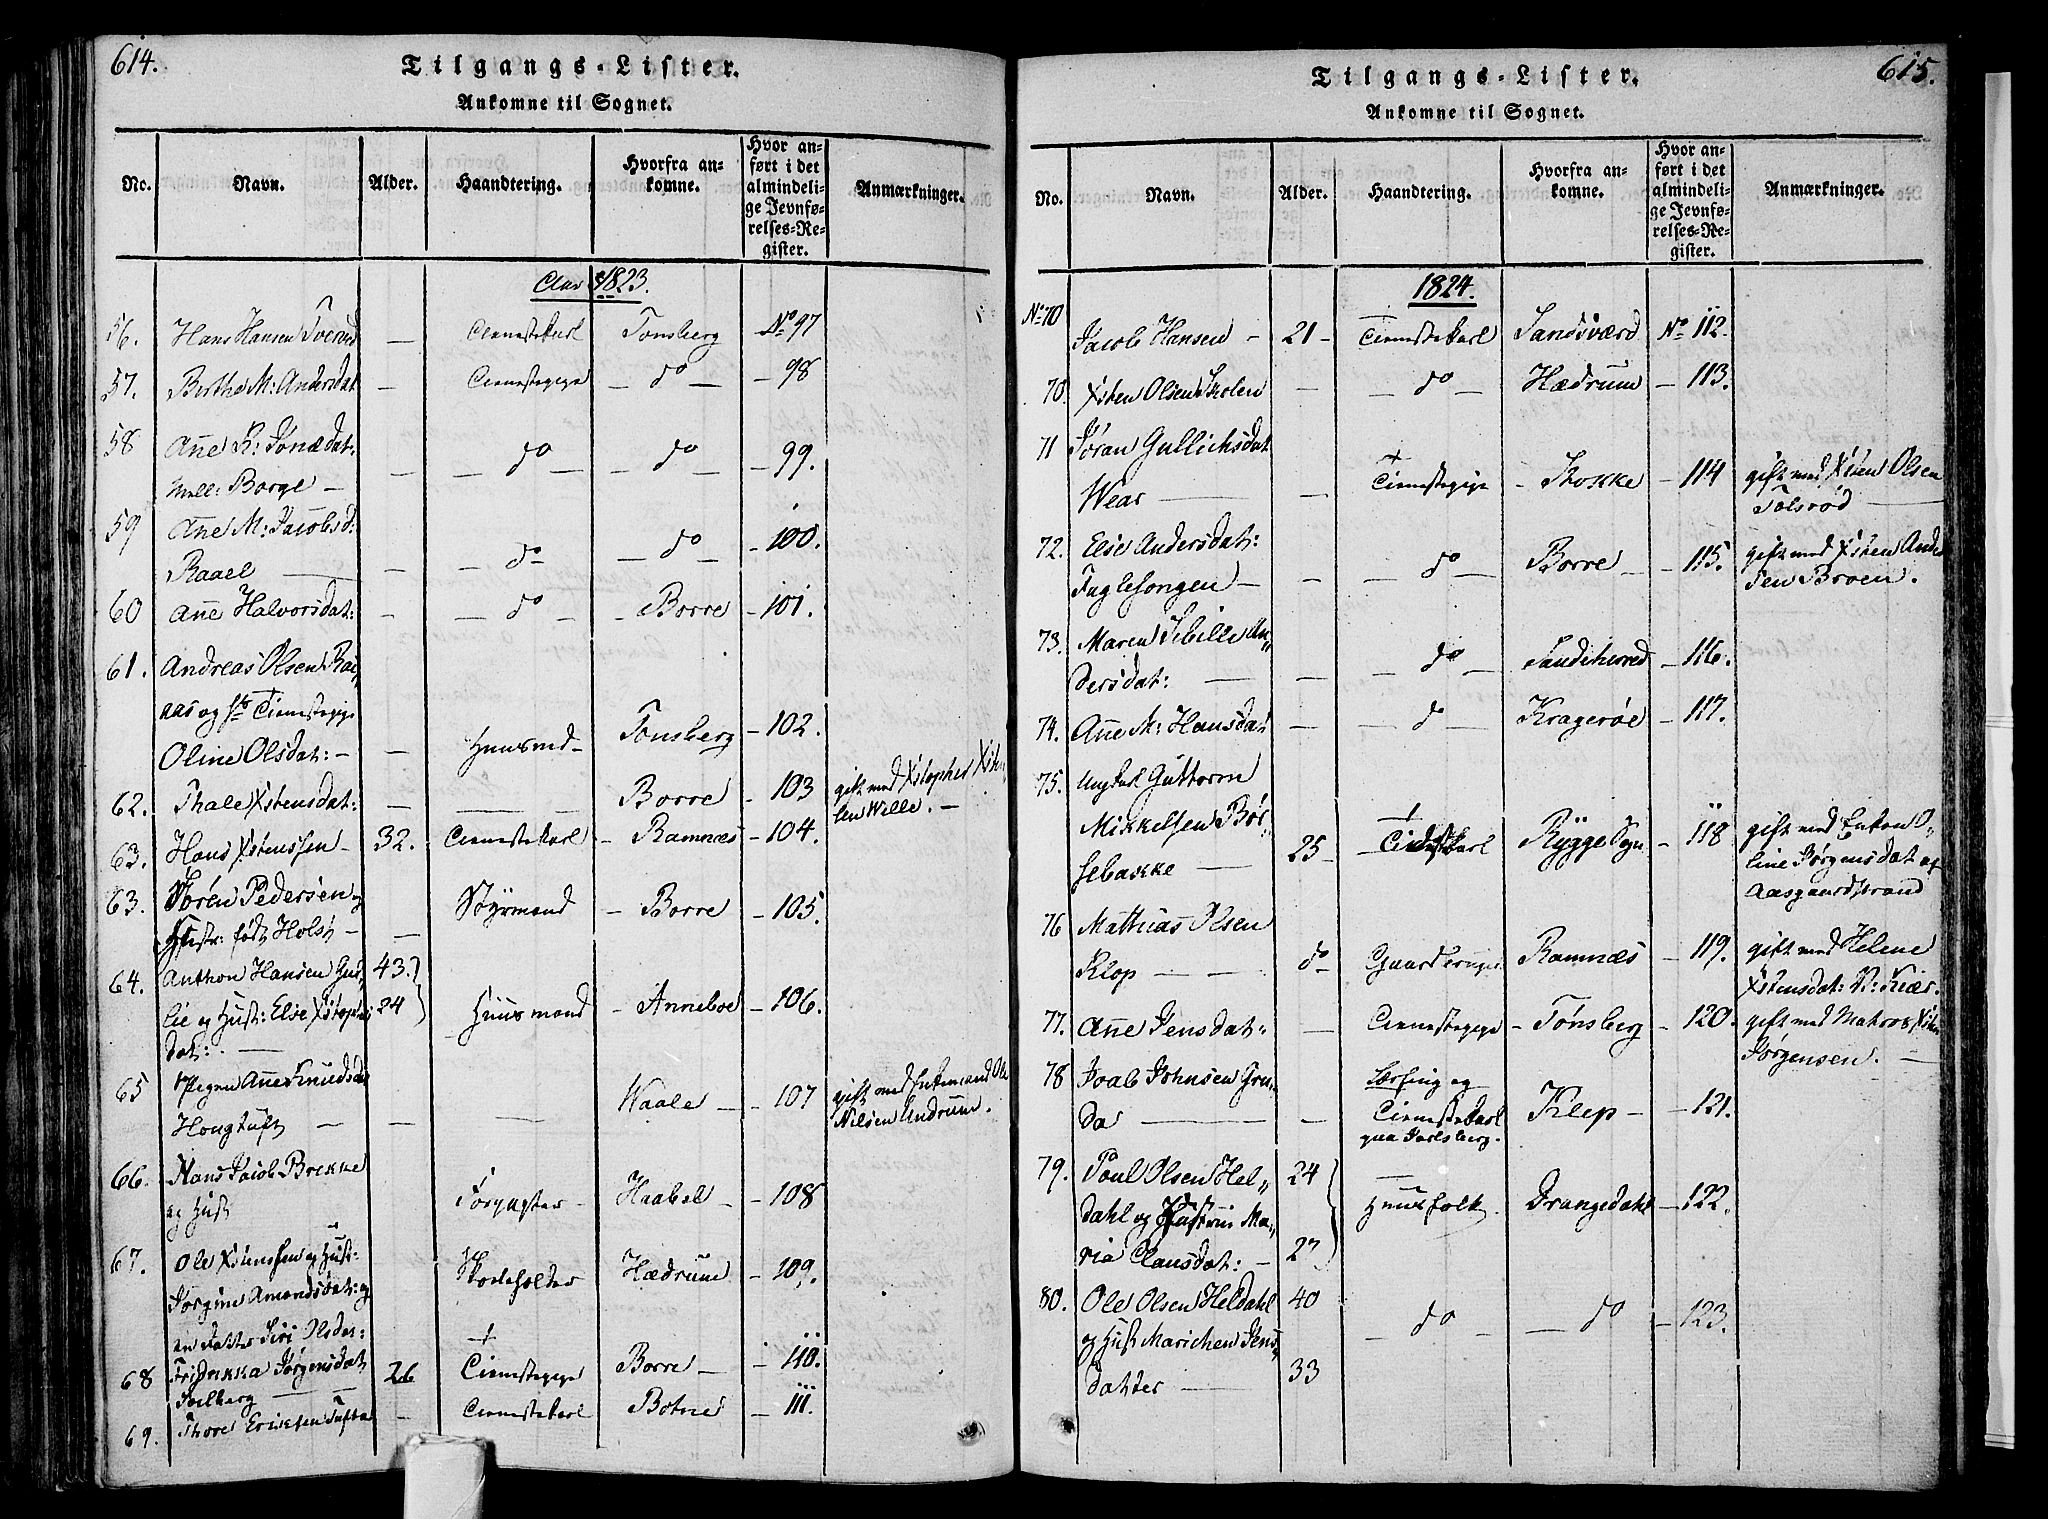 614.
Tilgangs-Lister.
Ankomne til Sognet.
No. Navn. Alder. Haandtering. Hvorfra an-
komne. Hvor an-
ført i det
almindeli-
ge Jevnfø-
relses-Re-
gister. Anmærkninger.
Aar 1823.
56. Hans Hansen — Tienestekarl Tonsberg No 97
57. Berthe M: Andersdat — Tienestepige — do — - 98
58 Ane K: Jonædat:
Borge — — — do — — do — - 99.
59 Ane M: Jacobsd:
Raael — — — do — — do — - 100.
60 Ane Halvorsdat: — — do — - Borre - 101.
61. Andreas Olsen
aas og Tienestepige
Oline Olsdat: — — Huusmd — Tonsberg - 102.
62. Thale Xstensdat: — — Borre - 103 gift med Xstopher Xsten
sen Wille. —
63. Hans Xstenssen — 32. Tienestekarl - Ramnæs - 104.
63. Søren Pedersen og
Hustr: født Holst — — Styrmand - Borre - 105.
64. Anthon Hansen 43.
lie og Hust: Else 24 Huusmand - Anneboe - 106.
dat: —
65 Pigen Ane Knudsdat
Hougtuft — — — Waale — - 107 gift med Ole
Nilsen Undrum.
66. Hans Jacob Brekke
og Hust — Haabel — - 108
67. Ole Xstenssen og Hust:
Jørgine Amondsdat: og Skoeholder Hædrum - 109.
en Datter Siri Olsdat:
68 Fridrikka Jørgensdat 26 Tienestepige Borre — - 110.
Solberg —
69. Thore Ericksen Tufte — Tienestekarl Botne - 111.
615.
Tilgangs-Lister.
Ankomne til Sognet.
No. Navn. Alder. Haandtering. Hvorfra an-
komne. Hvor an-
ført i det
almindeli-
ge Jevnfø-
relses-Re-
gister. Anmærkninger.
1824.
No 70 Jacob Hansen — 21 - Tienestekarl Sandsværd No 112.
70. Xsten Olsen Skolen — — do — Hædrum - 113.
71 Jøran Gullichsdat
Wear — — Tienestepige - Stokke - 114 gift med Xsten Olsen
Tolsrød —
72. Else Andersdat:
Fuglesangen — — — do — Borre — - 115. gift med Xsten Ander
sen Broen.
73. Maren Sibille An„
dersdat: — — — do — Sandeherred - 116.
74. Ane M: Hansdat — — do — Kragerøe - 117.
75. Ungkarl Guttorm
Mikkelsen Bør„
sebakke — 25 - Tienestekarl Rygge Sogn - 118 gift med Enken O„
line Jørgensdat af
Aasgaardstrand
76 Mathias Olsen
Klop — — do Gaardbruger Ramnæs - 119. gift med Helene
Xstensdat: N: Kiær.
77. Ane Jensdat: — Tienestepige - Tønsberg - 120. gift med Matros Xsten
Jørgensen. —
78 Joab Johnsen Gru„
da — — og
Tienestekarl
paa Jarlsberg. Klep — - 121.
79. Poul Olsen Hel„ 24
dahl og Hustrue Ma„ Huusfolk. Drangedahl - 122.
ria Clausdat: — 27
80. Ole Olsen Heldahl 40
og Hust Marichen Jens„ — do — — do - 123.
datter — 33